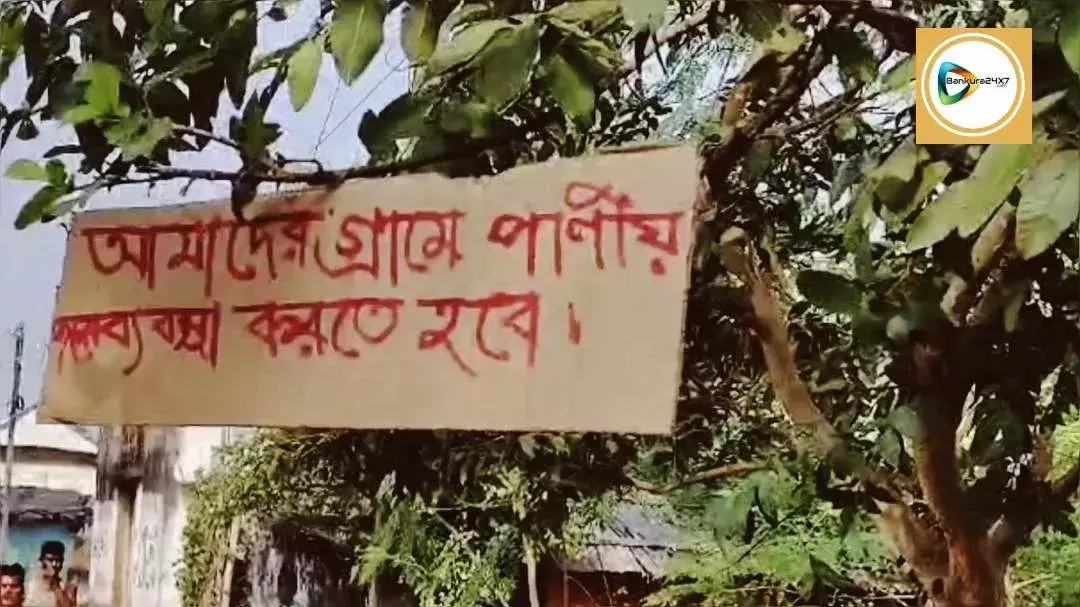 Bankura24X7
.net
আমাদের গ্রামে পাণীয়
জলের ব্যবস্থা করতে হবে।